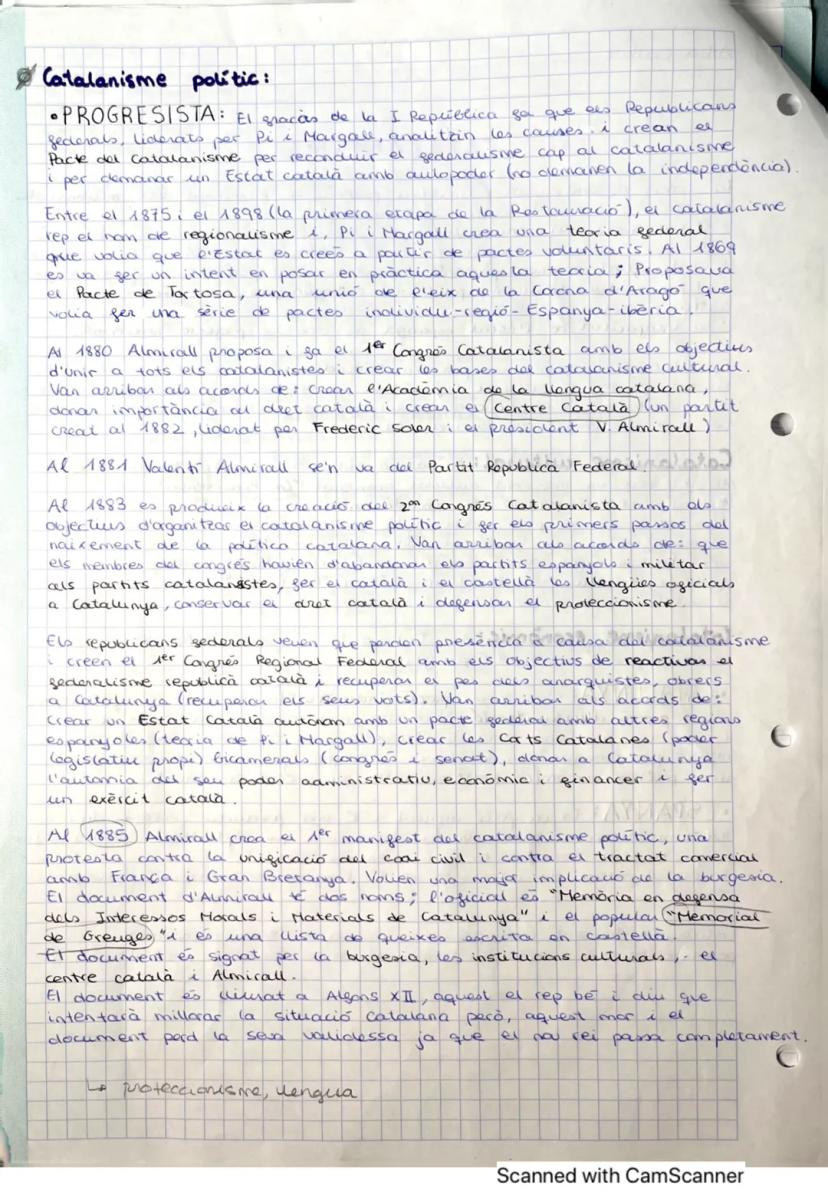 Catalanisme polític:
• PROGRESISTA: El gracàs de la I República fa que els Republicans
federals, liderats per Pi i Margall, analitzin les causes i crean el
Pacte del Catalanisme per reconduir el federalisme cap al catalanisme
i per demanar un Estat català amb autopoder (no demanen la independència).
Entre el 1875 i el 1898 (la primera etapa de la Restauració), el catalanisme
rep el nom de regionalisme i, Pi i Margall crea una teoria federal
que volia que l'Estat es creés a partir de pactes voluntaris. Al 1869
es va fer un intent en posar en pràctica aquesta teoria; Proposava
el Pacte de Tortosa, una unió de l'eix de la Corona d'Aragó que
volia fer una sèrie de pactes individu-regió-Espanya-ibèria.
Al 1880 Almirall proposa i fa el 1er Congrés Catalanista amb els objectius
d'unir a tots els catalanistes i crear les bases del catalanisme cultural.
Van arribar als acords de: crear l'Acadèmia de la llengua catalana,
donar importància al dret català i crear el Centre Català (un partit
creat al 1882, liderat per Frederic Soler i el president V. Almirall)
Al 1881 Valentí Almirall se'n va del Partit Republicà Federal.
Al 1883 es produeix la creació del 2on Congrés Catalanista amb els
objectius d'organitzar el catalanisme polític i fer els primers passos del
naixement de la política catalana. Van arribar als acords de: que
els membres del congrés havien d'abandonar els partits espanyols i militar
als partits catalanistes, fer el català i el castellà les llengües oficials
a Catalunya, conservar el dret català i defensar el proteccionisme.
Els republicans federals veuen que perden presència a causa del catalanisme
i creen el 1er Congrés Regional Federal amb els objectius de reactivar el
federalisme republicà català i recuperar el pes dels anarquistes, obrers
a Catalunya (recuperar els seus vots). Van arribar als acords de:
Crear un Estat Català autònom amb un pacte federal amb altres regions
espanyoles (teoria de Pi i Margall), crear les Corts Catalanes (poder
legislatiu propi) bicamerals (congrés i senat), donar a Catalunya
l'autonomia del seu poder administratiu, econòmic i financer i fer
un exèrcit català.
Al 1885 Almirall crea el 1er manifest del catalanisme polític, una
protesta contra la unificació del codi civil i contra el tractat comercial
amb França i Gran Bretanya. Volien una major implicació de la burgesia.
El document d'Almirall té dos noms; l'oficial és "Memòria en defensa
dels Interessos Morals i Materials de Catalunya" i el popular "Memorial
de Greuges" i és una llista de queixes escrita en castellà.
El document és signat per la burgesia, les institucions culturals, el
centre català i Almirall.
El document és lliurat a Alfons XII, aquest el rep bé i diu que
intentarà millorar la situació catalana però, aquest mor i el
document perd la seva validessa ja que el nou rei passa completament.
↳ proteccionisme, llengua
Scanned with CamScanner